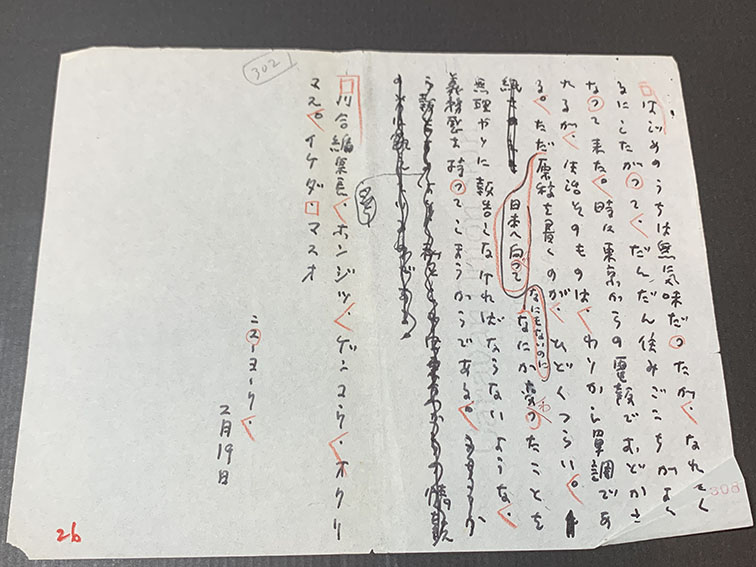 302
はじめのうちは無気味だったが、なれてく
るにしたがって、だんだん住みごこちがよく
なって来た。時に東京からの電話でおどかさ
れるが、生活そのものは、わりかし単調であ
る。ただ原稿を書くのが、ひどくつらい。
日本へ向って
なにもないのに
なにか変わったことを
無理やりに報告しなければならないような、
義務感を持ってしまうからである。
川合編集長、ホンジツ、ゲンコウ、オクリ
マス。イケダ・マスオ
ニューヨーク、
2月19日
308
26